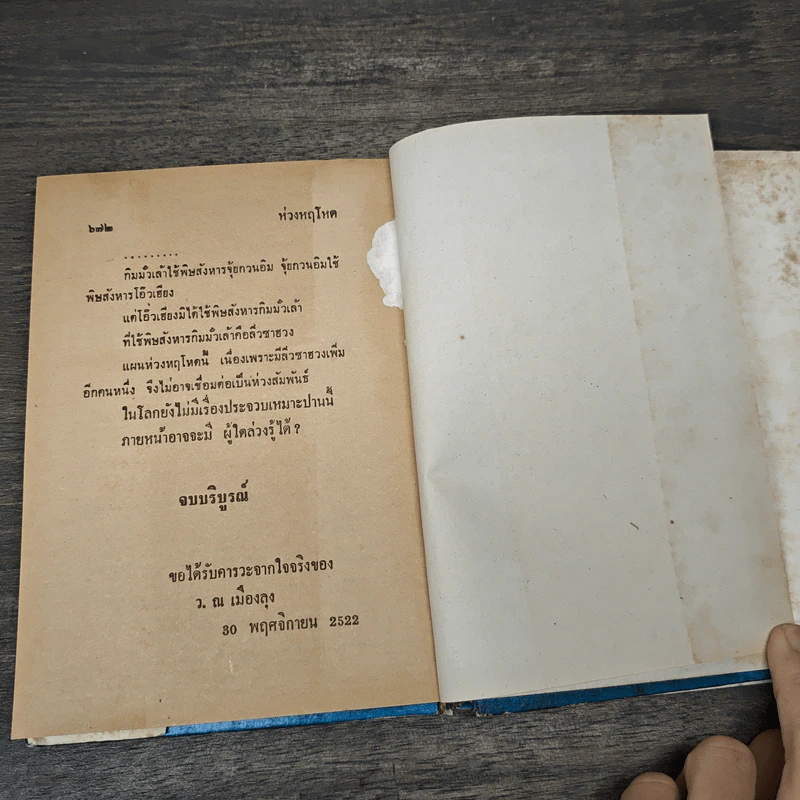 ๖๗๒
ห่วงหฤโหด
.........
กิมมั่วเล้าใช้พิษสังหารจุ้ยกวนอิม จุ้ยกวนอิมใช้
พิษสังหารโอ๊วเฮียง
แต่โอ๊วเฮียงมิได้ใช้พิษสังหารกิมมั่วเล้า
ที่ใช้พิษสังหารกิมมั่วเล้าคือลิ่วซาฮวง
แผนห่วงหฤโหดนี้ เนื่องเพราะมีลิ่วซาฮวงเพิ่ม
อีกคนหนึ่ง จึงไม่อาจเชื่อมต่อเป็นห่วงสัมพันธ์
ในโลกยังไม่มีเรื่องประจวบเหมาะปานนี้
ภายหน้าอาจจะมี ผู้ใดล่วงรู้ได้ ?
จบบริบูรณ์
ขอได้รับคารวะจากใจจริงของ
ว. ณ เมืองลุง
30 พฤศจิกายน 2522